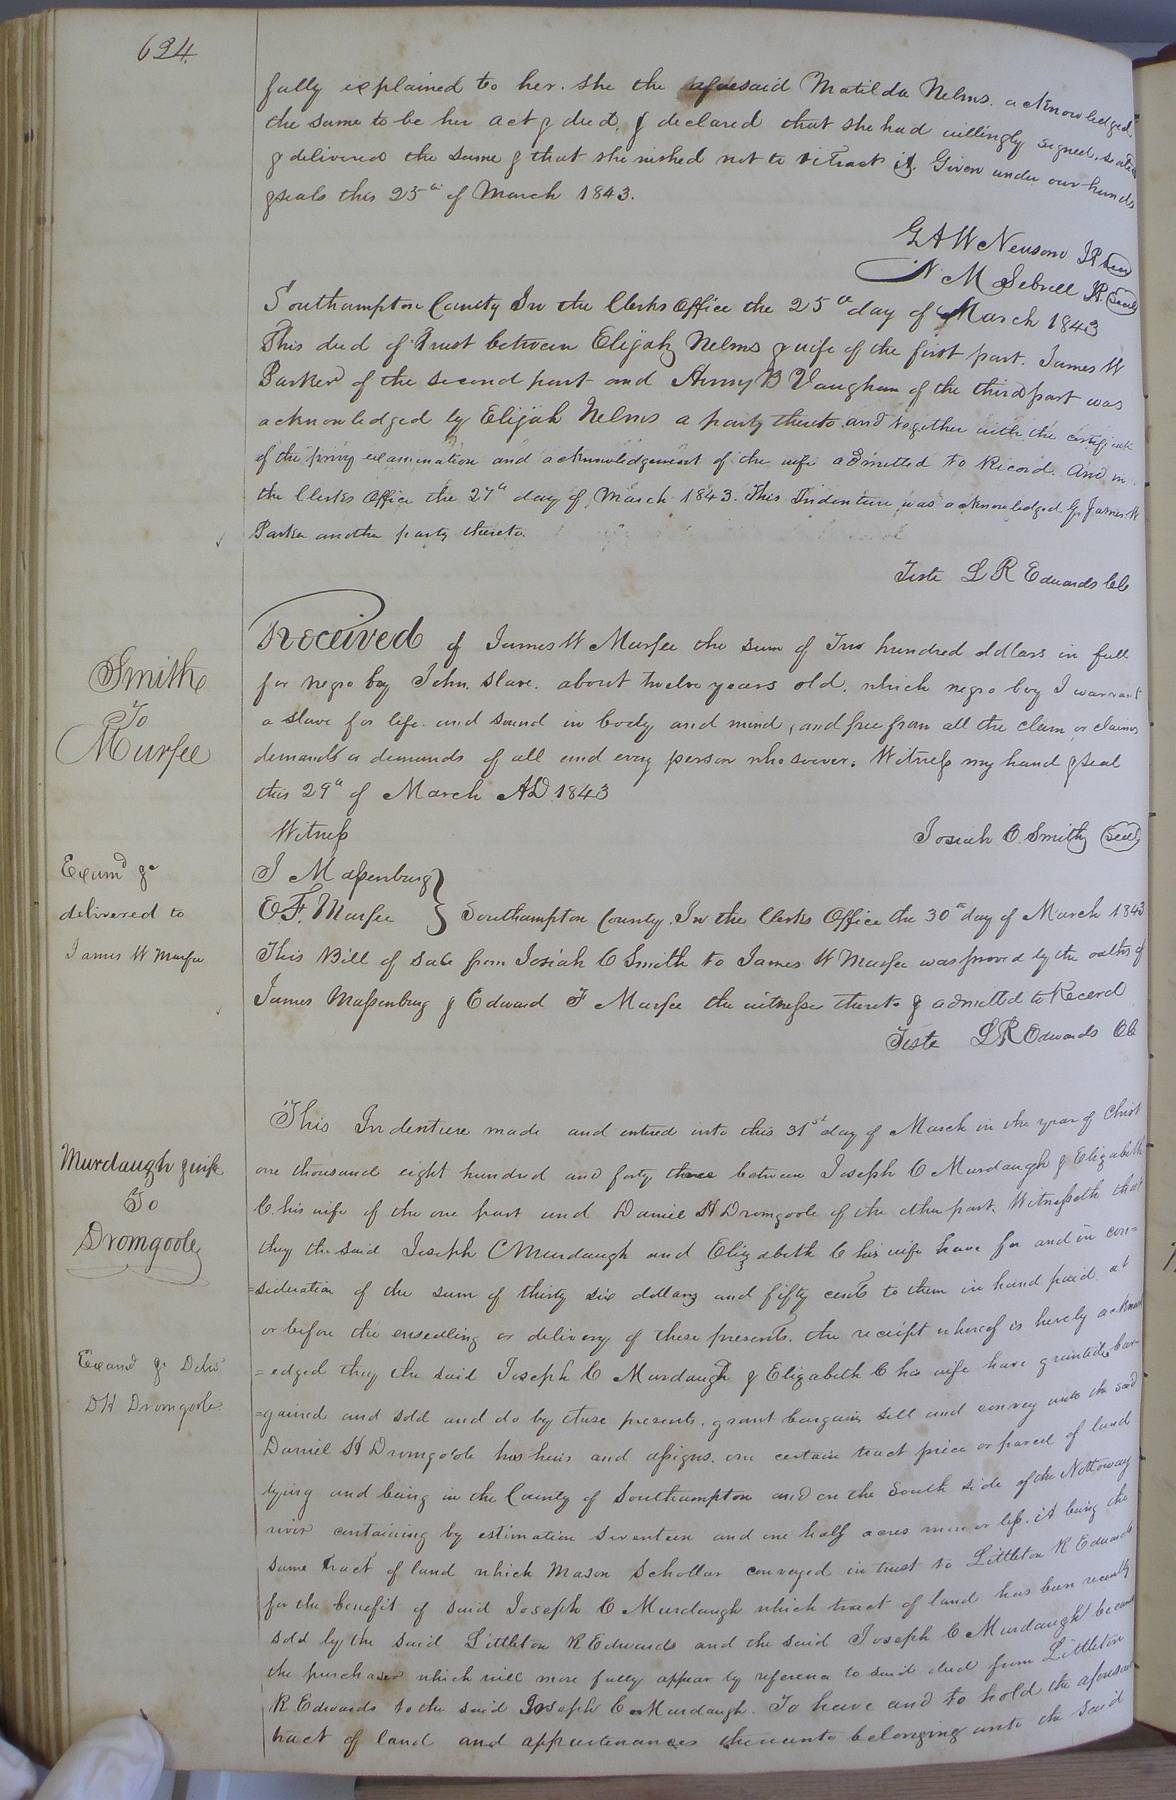 624
fully explained to her. she the aforesaid Matilda Nelms. acknowledged
the same to be her act & deed, & declared that she had willingly signed, sealed
& delivered the same & that she wished not to retract it. Given under our hands
& seals this 25th of March 1843.
G A W Newsom JP Seal
N. M Sebrell JP. Seal
Southampton County In the Clerks Office the 25th day of March 1843
This deed of Trust between Elijah Nelms & wife of the first part. James W
Parker of the second part and Henry B Vaughan of the third part was
acknowledged by Elijah Nelms a party thereto and together with the certificate
of the privy examination and acknowledgement of the wife admitted to Record. And in
the Clerks Office the 27th day of March 1843. This Indenture was acknowledged by James W
Parker another party thereto.
Teste L R Edwards CC
Smith
To
Murfee
Received of James W Murfee the sum of Two hundred dollars in full
for negro boy John. slave. about twelve years old. which negro boy I warrant
a slave for life. and sound in body and mind, and free from all the claim or claims
demands or demands of all and every person whosoever. Witness my hand & seal
this 29th of March AD 1843
Witness
Josiah C. Smith Seal
Examd &
delivered to
James W Murfee
J Massenburg
E. F. Murfee } Southampton County. In the Clerks Office the 30th day of March 1843
This Bill of Sale from Josiah C Smith to James W Murfee was proved by the oaths of
James Massenburg & Edward F Murfee the witnesse thereto & admitted to Record
Teste L R Edwards CC
Murdaugh & wife
To
Dromgoole
Examd & Deld
D H Dromgoole
This Indenture made and entered into this 31st day of March in the year of Christ
one thousand eight hundred and forty three between Joseph C Murdaugh & Elizabeth
C. his wife of the one part and Daniel H Dromgoole of the other part. Witnesseth that
they the said Joseph C Murdaugh and Elizabeth C his wife have for and in con=
=sideration of the sum of thirty six dollars and fifty cents to them in hand paid at
or before the ensealing or delivery of these presents. the receipt whereof is hereby acknowl
=edged they the said Joseph C Murdaugh & Elizabeth C his wife have granted bar-
=gained and sold and do by these presents. grant bargain sell and convey unto the said
Daniel H Dromgoole his heirs and assigns. one certain tract piece or parcel of land
lying and being in the County of Southampton and on the South side of the Nottoway
river containing by estimation Seventeen and one half acres more or less. it being the
same tract of land which Mason Schollar conveyed in trust to Littleton R Edwards
for the benefit of said Joseph C Murdaugh which tract of land has been recently
sold by the said Littleton R Edwards and the said Joseph C Murdaugh became
the purchaser which will more fully appear by reference to said deed from Littleton
R Edwards to the said Joseph C Murdaugh. To have and to hold the aforesaid
tract of land and appurtenances thereunto belonging unto the said